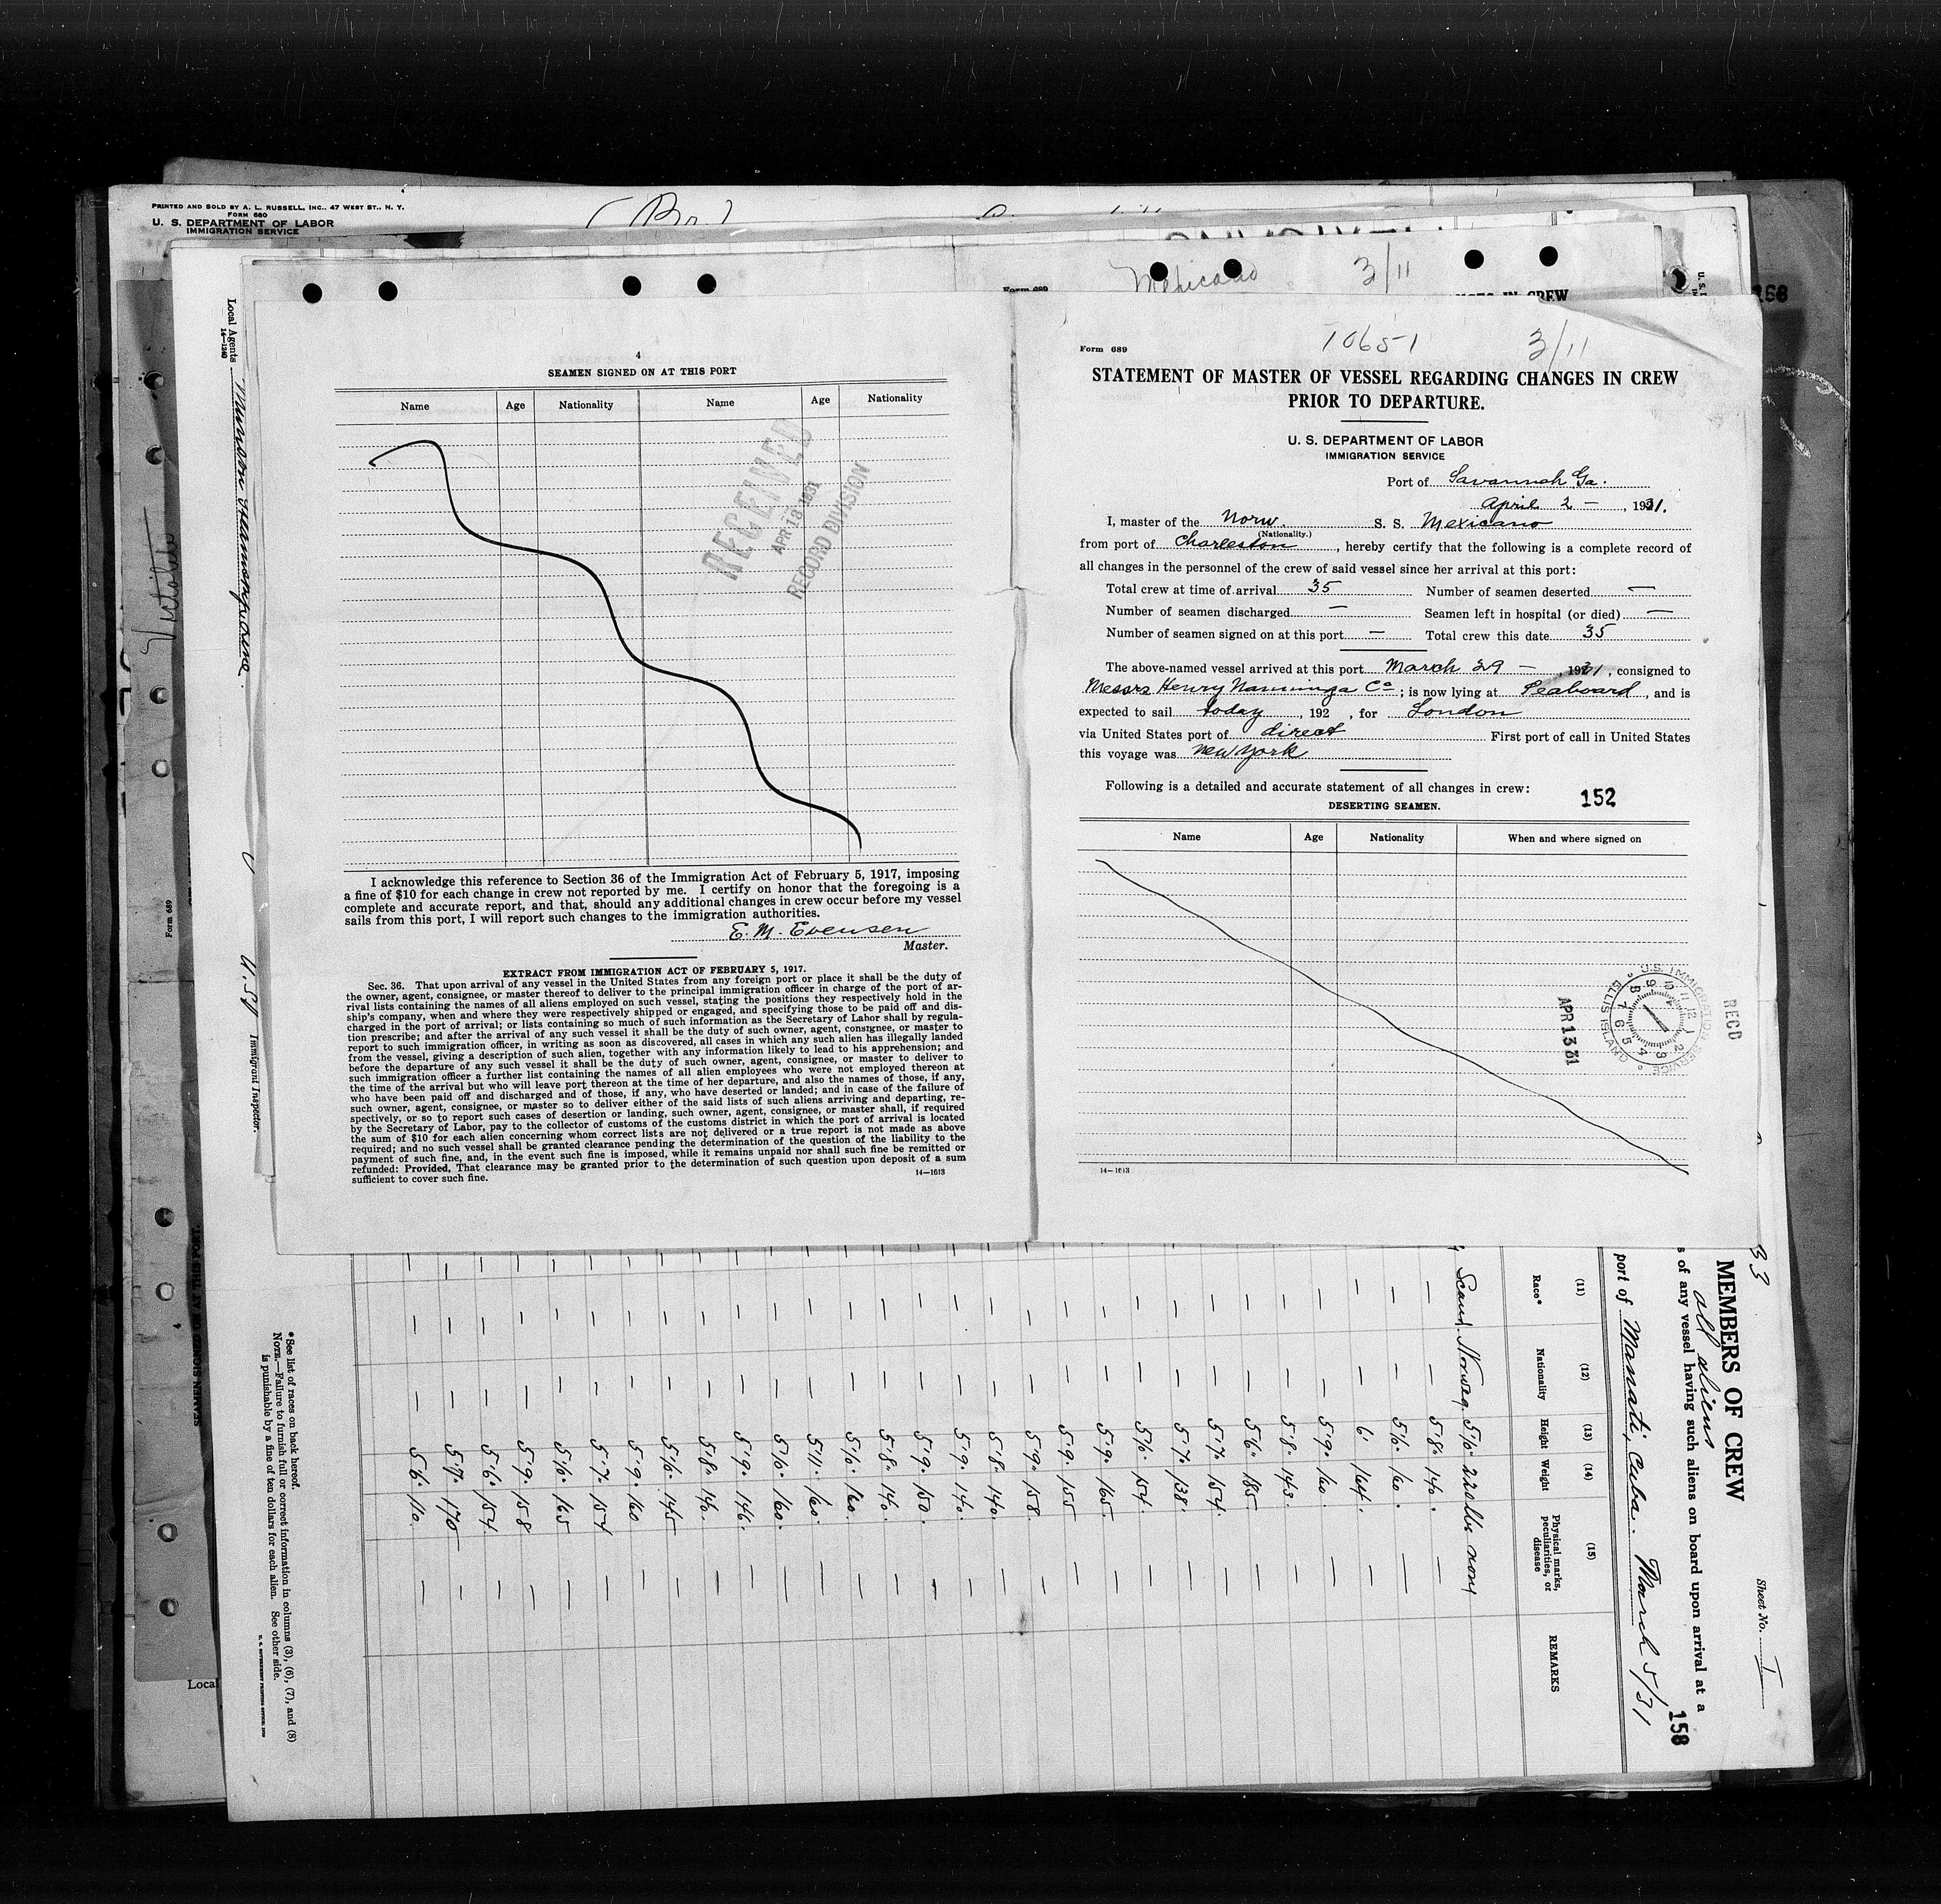 PRINTED AND SOLD BY A. L. RUSSELL, INC., 47 WEST ST., N. Y.
FORM 680
U. S. DEPARTMENT OF LABOR
IMMIGRATION SERVICE
Mexicano 3/11
Form 689
4
SEAMEN SIGNED ON AT THIS PORT
Name Age Nationality Name Age Nationality
RECEIVED
APR 18 1931
RECORD DIVISION
I acknowledge this reference to Section 36 of the Immigration Act of February 5, 1917, imposing
a fine of $10 for each change in crew not reported by me. I certify on honor that the foregoing is a
complete and accurate report, and that, should any additional changes in crew occur before my vessel
sails from this port, I will report such changes to the immigration authorities.
E. M. Evensen
Master.
EXTRACT FROM IMMIGRATION ACT OF FEBRUARY 5, 1917.
Sec. 36. That upon arrival of any vessel in the United States from any foreign port or place it shall be the duty of
the owner, agent, consignee, or master thereof to deliver to the principal immigration officer in charge of the port of ar-
rival lists containing the names of all aliens employed on such vessel, stating the positions they respectively hold in the
ship's company, when and where they were respectively shipped or engaged, and specifying those to be paid off and dis-
charged in the port of arrival; or lists containing so much of such information as the Secretary of Labor shall by regula-
tion prescribe; and after the arrival of any such vessel it shall be the duty of such owner, agent, consignee, or master to
report to such immigration officer, in writing as soon as discovered, all cases in which any such alien has illegally landed
from the vessel, giving a description of such alien, together with any information likely to lead to his apprehension; and
before the departure of any such vessel it shall be the duty of such owner, agent, consignee, or master to deliver to
such immigration officer a further list containing the names of all alien employees who were not employed thereon at
the time of the arrival but who will leave port thereon at the time of her departure, and also the names of those, if any,
who have been paid off and discharged and of those, if any, who have deserted or landed; and in case of the failure of
such owner, agent, consignee, or master so to deliver either of the said lists of such aliens arriving and departing, re-
spectively, or so to report such cases of desertion or landing, such owner, agent, consignee, or master shall, if required
by the Secretary of Labor, pay to the collector of customs of the customs district in which the port of arrival is located
the sum of $10 for each alien concerning whom correct lists are not delivered or a true report is not made as above
required; and no such vessel shall be granted clearance pending the determination of the question of the liability to the
payment of such fine, and, in the event such fine is imposed, while it remains unpaid nor shall such fine be remitted or
refunded: Provided, That clearance may be granted prior to the determination of such question upon deposit of a sum
sufficient to cover such fine.
14—1613
10651 3/11
Form 689
STATEMENT OF MASTER OF VESSEL REGARDING CHANGES IN CREW
PRIOR TO DEPARTURE.
U. S. DEPARTMENT OF LABOR
IMMIGRATION SERVICE
Port of Savannah Ga.
April 2 — , 1931.
I, master of the Norw. S. S. Mexicano
(Nationality.)
from port of Charleston, hereby certify that the following is a complete record of
all changes in the personnel of the crew of said vessel since her arrival at this port:
Total crew at time of arrival 35 Number of seamen deserted —
Number of seamen discharged — Seamen left in hospital (or died) —
Number of seamen signed on at this port — Total crew this date 35
The above-named vessel arrived at this port March 29 — , 1931, consigned to
Messrs Henry Nanninga Co ; is now lying at Seaboard, and is
expected to sail today, 192 , for London
via United States port of direct First port of call in United States
this voyage was New York
Following is a detailed and accurate statement of all changes in crew:
152
DESERTING SEAMEN.
Name Age Nationality When and where signed on
U.S. IMMIGRATION SERVICE
ELLIS ISLAND
APR 13 31
RECD
14—1613
Local Agents
14—1240
Munson Steamship Line
Immigrant Inspector.
Form 689
SEAMEN SIGNED ON AT THIS PORT.
Local
Sheet No. I
MEMBERS OF CREW
all aliens
s of any vessel having such aliens on board upon arrival at a
158
port of Manati, Cuba. March 5/31
(11) (12) (13) (14) (15)
Race* Nationality Height Weight Physical marks, peculiarities, or disease REMARKS
Scand. Norweg. 5'6" 220 lbs none
— — 5'8" 140. —
— — 5'6" 160. —
— — 6' 164. —
— — 5'9" 160. —
— — 5'8" 143. —
— — 5'6" 185. —
— — 5'7" 154. —
— — 5'7" 138. —
— — 5'6" 154. —
— — 5'9" 165. —
— — 5'9" 155 —
— — 5'9" 158. —
— — 5'8" 140. —
— — 5'9" 140. —
— — 5'9" 150. —
— — 5'8" 140. —
— — 5'6" 160. —
— — 5'11" 160. —
— — 5'6" 160. —
— — 5'9" 146. —
— — 5'8" 140. —
— — 5'6" 145 —
— — 5'9" 160 —
— — 5'7" 154 —
— — 5'6" 165 —
— — 5'9" 158 —
— — 5'6" 154 —
— — 5'7" 170 —
— — 5'6" 110. —
*See list of races on back hereof.
NOTE.—Failure to furnish full or correct information in columns (3), (6), (7), and (8)
is punishable by a fine of ten dollars for each alien. See other side.